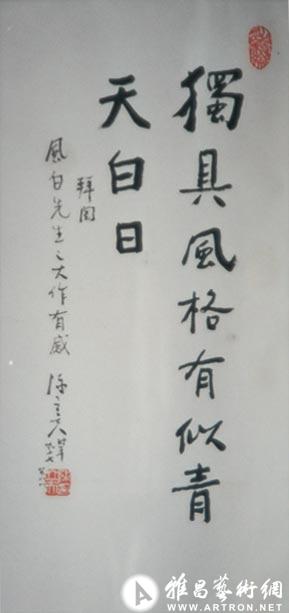 獨具風格有似青
天白日
拜閱
風白先生之大作有感 陳立夫 年九十七
雅昌藝術網
WWW.ARTRON.NET